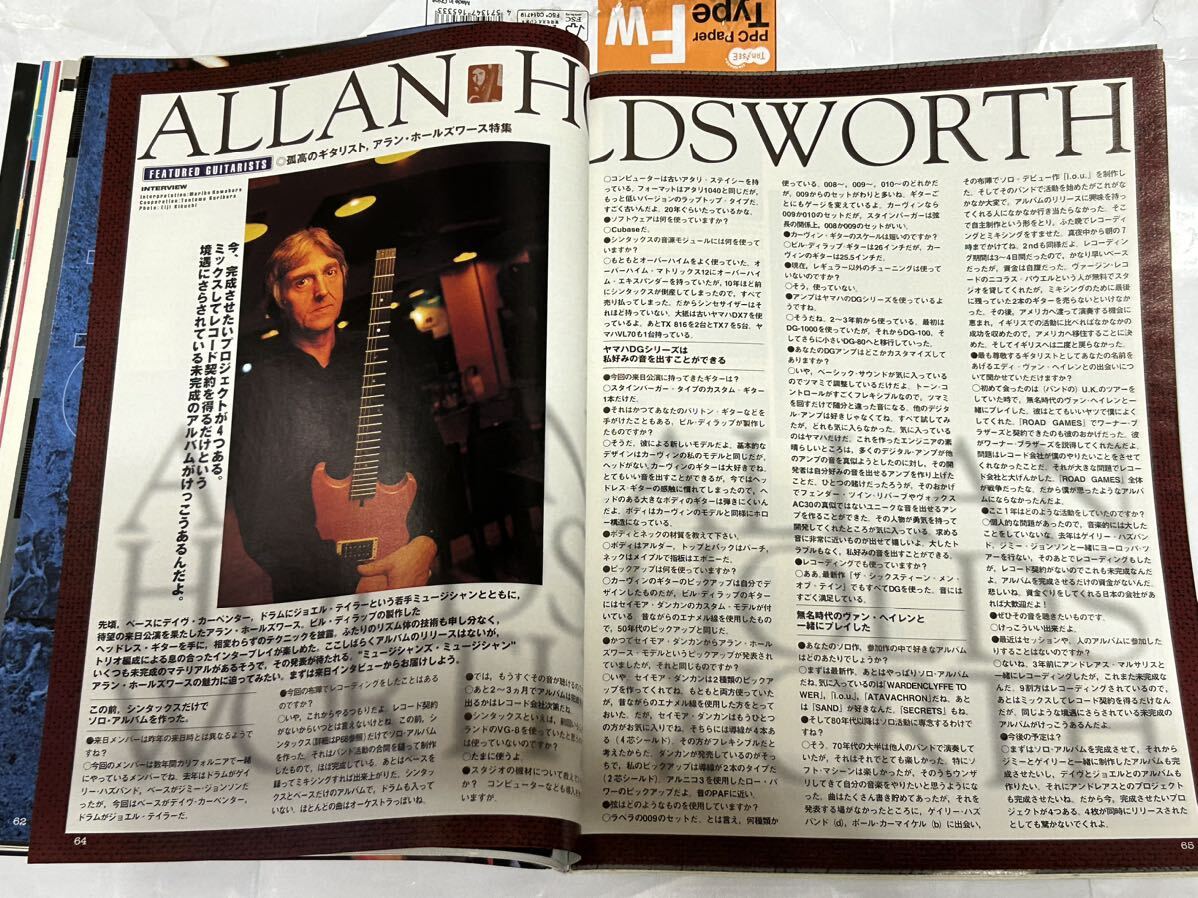 PPC Paper
Type
Fw
TANOSEE
4 571347 165333
ALLAN HOLDSWORTH
FEATURED GUITARISTS
◎孤高のギタリスト，アラン・ホールズワース特集
INTERVIEW
Interpretation:Mariko Kawahara
Cooperation:Tautomu Kurihara
Photo:Eiji Kikuchi
今、完成させたいプロジェクトが4つある。
ミックスしてレコード契約を得るだけという
境遇にさらされている未完成のアルバムがけっこうあるんだよ。
先頃，ベースにデイヴ・カーペンター，ドラムにジョエル・テイラーという若手ミュージシャンとともに，
待望の来日公演を果たしたアラン・ホールズワース。ビル・ディラップの製作した
ヘッドレス・ギターを手に，相変わらずのテクニックを披露。ふたりのリズム体の技術も申し分なく，
トリオ編成による息の合ったインタープレイが楽しめた。ここしばらくアルバムのリリースはないが，
いくつも未完成のマテリアルがあるそうで，その発表が待たれる。"ミュージシャンズ・ミュージシャン"
アラン・ホールズワースの魅力に迫ってみたい。まずは来日インタビューからお届けしよう。
この前，シンタックスだけで
ソロ・アルバムを作った。
●来日メンバーは昨年の来日時とは異なるようで
すね？
○今回のメンバーは数年間カリフォルニアで一緒
にやっているメンバーでね。去年はドラムがゲイ
リー・ハズバンド，ベースがジミー・ジョンソンだ
ったが，今回はベースがデイヴ・カーペンター，
ドラムがジョエル・テイラーだ。
●今回の布陣でレコーディングをしたことはある
のですか？
○いや，これからやるつもりだよ。レコード契約
がないからいつとは言えないけどね。この前，シ
ンタックス（詳細はP68参照）だけでソロ・アルバム
を作った。それはバンド活動の合間を縫って制作
したもので，ほぼ完成している。あとはベースを
録ってミキシングすれば出来上がりだ。シンタッ
クスとベースだけのアルバムで，ドラムも入って
いない。ほとんどの曲はオーケストラっぽいね。
●では，もうすぐその音が聴けるの
○あと2〜3ヵ月でアルバムは完成
出るかはレコード会社次第だね。
●シンタックスといえば，
ランドのVG-8を使っていたと思うの
は使っていないのですか？
○たまに使うよ。
●スタジオの機材について教えてい
か？ コンピューターなども導入
いますが。
○コンピューターは古いアタリ・ステイシーを持
っている。フォーマットはアタリ1040と同じだが，
もっと低いバージョンのラップトップ・タイプだ。
すごく古いんだよ。20年ぐらいたっているかな。
●ソフトウェアは何を使っていますか？
○Cubaseだ。
●シンタックスの音源モジュールには何を使って
いますか？
○もともとオーバーハイムをよく使っていた。オ
ーバーハイム・マトリックス12にオーバーハイ
ム・エキスパンダーを持っていたが，10年ほど前
にシンタックスが倒産してしまったので，すべて
売り払ってしまった。だからシンセサイザーはそ
れほど持っていない。大抵は古いヤマハDX7を使
っているよ。あとTX 816を2台とTX7を5台，ヤ
マハVL70も1台持っている。
ヤマハDGシリーズは
私好みの音を出すことができる
●今回の来日公演に持ってきたギターは？
○スタインバーガー・タイプのカスタム・ギター
1本だけだ。
●それはかつてあなたのバリトン・ギターなどを
手がけたこともある，ビル・ディラップが製作し
たものですか？
○そうだ，彼による新しいモデルだよ。基本的な
デザインはカーヴィンの私のモデルと同じだが，
ヘッドがない。カーヴィンのギターは大好きでね。
とてもいい音を出すことができるが，今ではヘッ
ドレス・ギターの感触に慣れてしまったので，ヘ
ッドのある大きなボディのギターは弾きにくいん
だよ。ボディはカーヴィンのモデルと同様にホロ
ー構造になっている。
●ボディとネックの材質を教えて下さい。
○ボディはアルダー，トップとバックはバーチ，
ネックはメイプルで指板はエボニーだ。
●ピックアップは何を使っていますか？
○カーヴィンのギターのピックアップは自分でデ
ザインしたものだが，ビル・ディラップのギター
にはセイモア・ダンカンのカスタム・モデルが付
いている 昔ながらのエナメル線を使用したもの
で，50年代のピックアップと同じだ。
●かつてセイモア・ダンカンからアラン・ホール
ズワース・モデルというピックアップが発表され
ていましたが，それと同じものですか？
○いや，セイモア・ダンカンは2種類のピックア
ップを作ってくれてね。もともと両方使っていた
が，昔ながらのエナメル線を使用した方をとって
おいた。だが，セイモア・ダンカンはもうひとつ
の方がお気に入りでね。そちらには導線が4本あ
る（4芯シールド）。その方がフレキシブルだと
考えたからだ。ダンカンが発売しているのがそっ
ちで，私のピックアップは導線が2本のタイプだ
（2芯シールド）。アルニコ3を使用したロー・パ
ワーのピックアップだよ。昔のPAFに近い。
●弦はどのようなものを使用していますか？
○ラベラの009のセットだ。とは言え，何種類か
使っている。008〜，009〜，010〜のどれかだ
が，009からのセットがわりと多いね。ギターご
とにもゲージを変えているよ。カーヴィンなら
009か010のセットだが，スタインバーガーは弦
長の関係上，008か009のセットがいい。
●カーヴィン・ギターのスケールは短いのですか？
○ビル・ディラップ・ギターは26インチだが，カー
ヴィンのギターは25.5インチだ。
●現在，レギュラー以外のチューニングは使って
いないのですか？
○そう，使っていない。
●アンプはヤマハのDGシリーズを使っているよ
うですね。
○そうだね，2〜3年前から使っている。最初は
DG-1000を使っていたが，それからDG-100，そ
してさらに小さいDG-80へと移行していった。
●あなたのDGアンプはどこかカスタマイズして
ありますか？
○いや，ベーシック・サウンドが気に入っている
のでツマミで調整しているだけだよ。トーン・コ
ントロールがすごくフレキシブルなので，ツマミ
を回すだけで随分と違った音になる。他のデジタ
ル・アンプは好きじゃなくてね。すべて試してみ
たが，とれも気に入らなかった。気に入っている
のはヤマハだけだ。これを作ったエンジニアの素
晴らしいところは，多くのデジタル・アンプが他
のアンプの音を真似ようとしたのに対し，その開
発者は自分好みの音を出せるアンプを作り上げた
ことだ。ひとつの賭けだったろうが，そのおかげ
でフェンダー・ツイン・リバーブやヴォックス
AC30の真似ではないユニークな音を出せるアン
プを作ることができた。その人物が勇気を持って
開発してくれたところが気に入っている。求める
音に非常に近いものが出せて嬉しいよ。大したト
ラブルもなく，私好みの音を出すことができる。
●レコーディングでも使っていますか？
○ああ，最新作『ザ・シックスティーン・メン・
オブ・テイン』でもすべてDGを使った。音には
すごく満足している。
無名時代のヴァン・ヘイレンと
一緒にプレイした
●あなたのソロ作，参加作の中で好きなアルバム
はどのあたりでしょうか？
○まずは最新作。あとはやっぱりソロ・アルバム
だね。気に入っているのは『WARDENCLYFFE TO
WER』，『I.o.u.』，『ATAVACHRON』だね。あと
は『SAND』が好きなんだ。『SECRETS』もね。
●そして80年代以降はソロ活動に専念するわけで
すが？
○そう。70年代の大半は他人のバンドで演奏して
いたが，それはそれでとても楽しかった。特にソ
フト・マシーンは楽しかったが，そのうちウンザ
リしてきて自分の音楽をやりたいと思うようにな
った。曲はたくさん書き貯めてあったが，それを
発表する場がなかったところに，ゲイリー・ハズ
バンド（d），ポール・カーマイケル（b）に出会い，
その布陣でソロ・デビュー作『I.o.u.』を制作し
た。そしてそのバンドで活動を始めたがこれがな
かなか大変で，アルバムのリリースに興味を持っ
てくれる人になかなか行き当たらなかった。そこ
で自主制作という形をとり，ふた晩でレコーディ
ングとミキシングをすませた。真夜中から朝の7
時までかけてね。2ndも同様だよ。レコーディン
グ期間は3〜4日間だったので，かなり早いペース
だったが，資金は自腹だった。ヴァージン・レコ
ードのニコラス・パウエルという人が無料でスタ
ジオを貸してくれたが，ミキシングのために最後
に残っていた2本のギターを売らないといけなか
った。その後，アメリカへ渡って演奏する機会に
恵まれ，イギリスでの活動に比べればなかなかの
成功を収めたので，アメリカへ移住することに決
めた。そしてイギリスへは二度と戻らなかった。
●最も尊敬するギタリストとしてあなたの名前を
あげるエディ・ヴァン・ヘイレンとの出会いにつ
いて聞かせていただけますか？
○初めて会ったのは（バンドの）U.K.のツアーを
していた時で，無名時代のヴァン・ヘイレンと一
緒にプレイした。彼はとてもいいヤツで僕によく
してくれた。『ROAD GAMES』でワーナー・ブラ
ザーズと契約できたのも彼のおかげだった。彼
がワーナー・ブラザーズを説得してくれたんだよ。
問題はレコード会社が僕のやりたいことをさせて
くれなかったことだ。それが大きな問題でレコー
ド会社と大げんかした。『ROAD GAMES』全体
が戦争だったな。だから僕が思ったようなアルバ
ムにならなかったんだよ。
●ここ1年はどのような活動をしていたのですか？
○個人的な問題があったので，音楽的には大した
ことをしていない。去年はゲイリー・ハズバン
ド，ジミー・ジョンソンと一緒にヨーロッパ・ツ
アーを行ない，そのあとでレコーディングもした
が，レコード契約がないのでこれも未完成なんだ
よ。アルバムを完成させるだけの資金がないんだ。
悲しいね。資金ぐりをしてくれる日本の会社があ
れば大歓迎だよ！
●ぜひその音を聴きたいものです。
○けっこういい出来だよ。
●最近はセッションや，人のアルバムに参加した
りすることはないのですか？
○ないね。3年前にアンドレアス・マルサリスと
一緒にレコーディングしたが，これまた未完成な
んだ。9割方はレコーディングされているので，
あとはミックスしてレコード契約を得るだけなん
だが，同じような境遇にさらされている未完成の
アルバムがけっこうあるんだよ。
●今後の予定は？
○まずはソロ・アルバムを完成させて，それから
ジミーとゲイリーと一緒に制作したアルバムも完
成させたいし，デイヴとジョエルとのアルバムも
作りたい。それにアンドレアスとのプロジェクト
も完成させたいね。だから今，完成させたいプロ
ジェクトが4つある。4枚が同時にリリースされた
としても驚かないでくれよ。
62
64
65